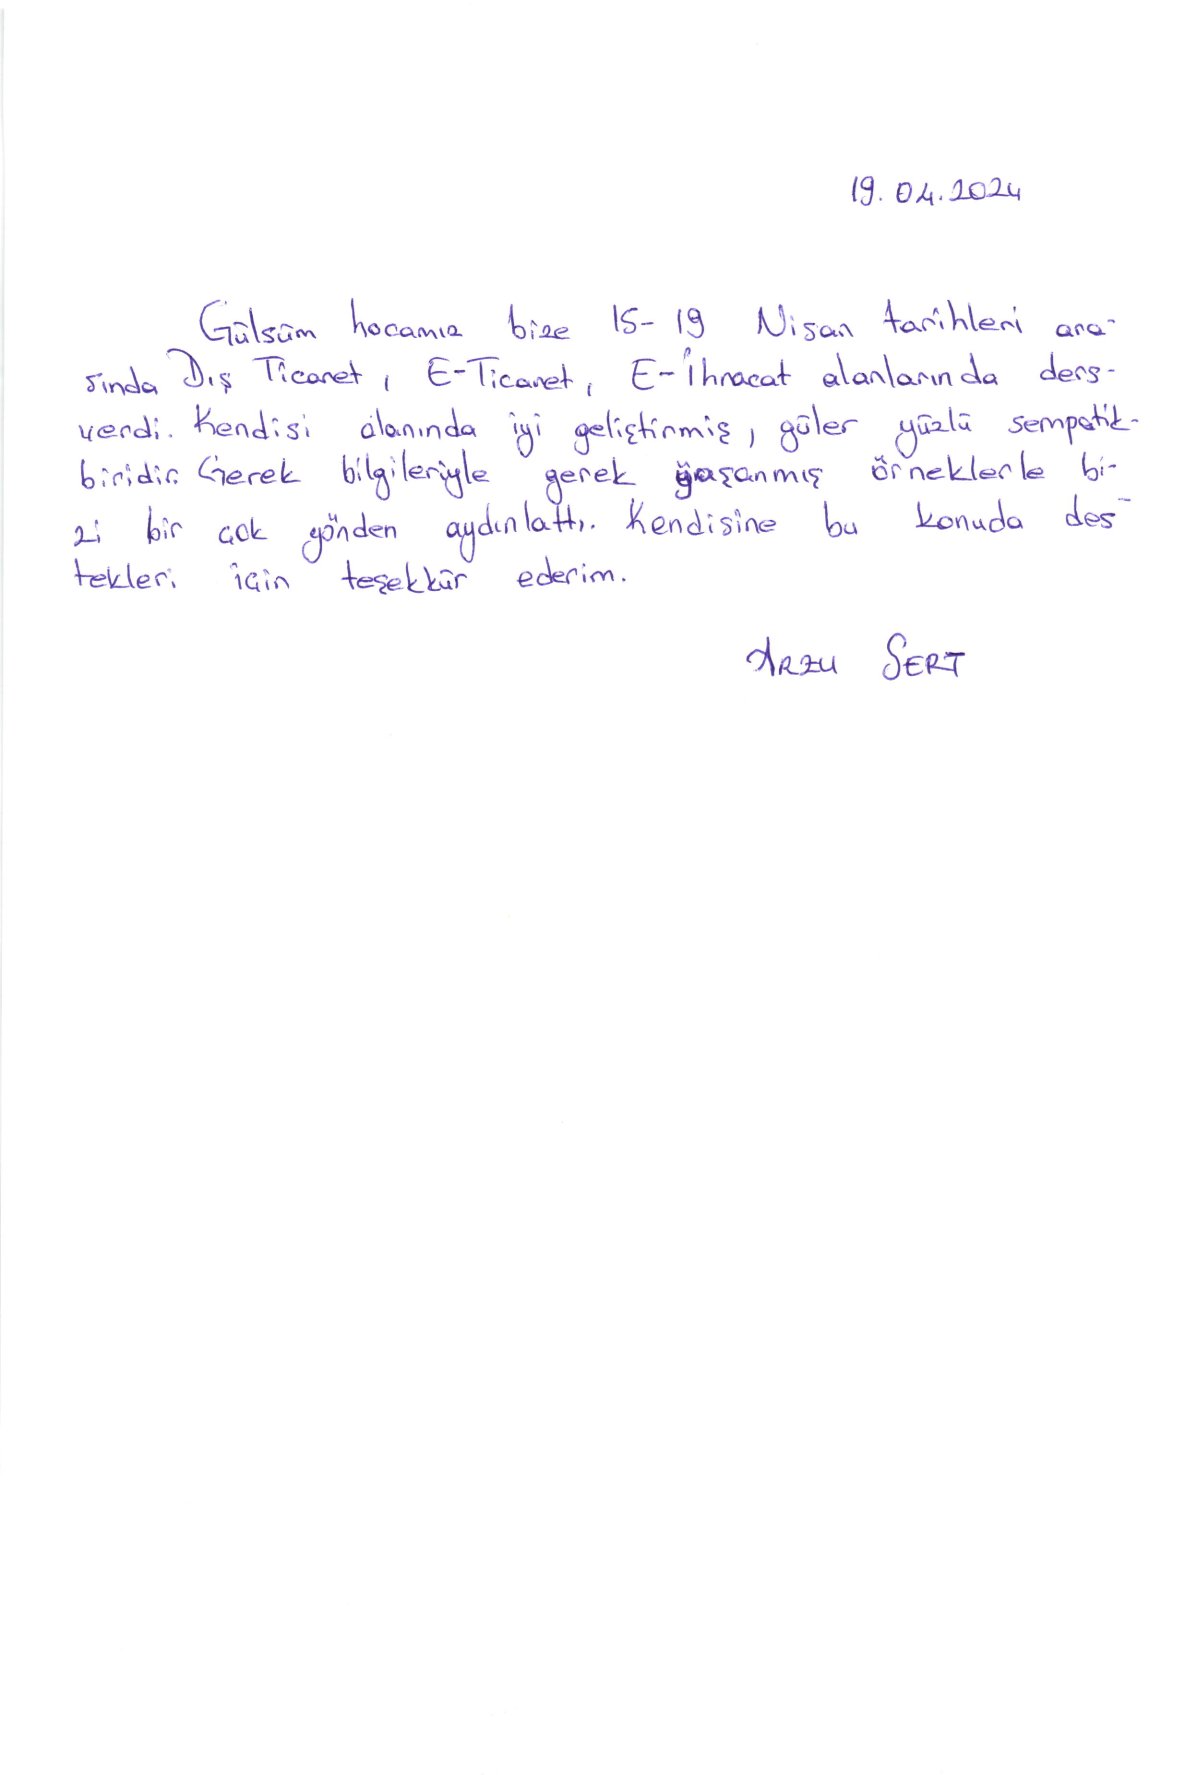 19.04.2024
Gülsüm hocamız bize 15-19 Nisan tarihleri ara-
sında Dış Ticaret, E-Ticaret, E-İhracat alanlarında ders-
verdi. Kendisi alanında iyi geliştirmiş, güler yüzlü sempatik-
biridir. Gerek bilgileriyle gerek yaşanmış örneklerle bi-
zi bir çok yönden aydınlattı. Kendisine bu konuda des-
tekleri için teşekkür ederim.
ARZU SERT